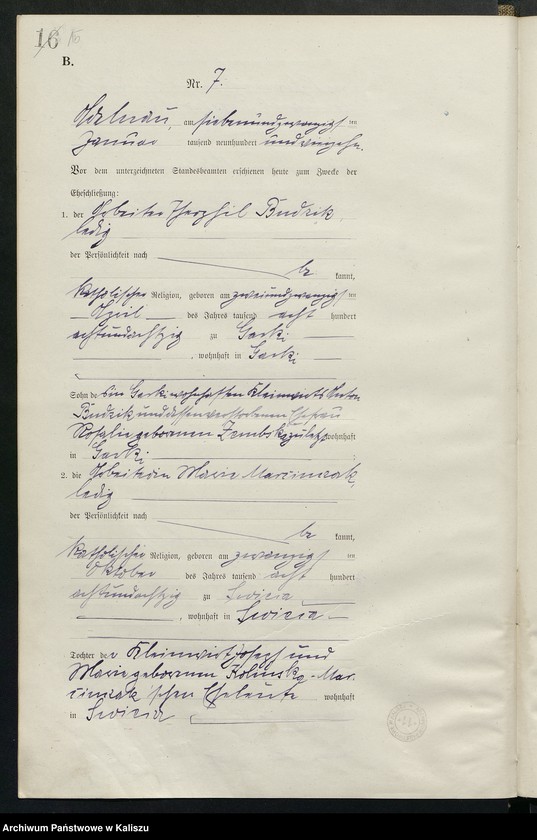 16
B.
Nr. 7.
Adelnau, am siebenundzwanzigsten
Januar tausend neunhundert undvierzehn.
Vor dem unterzeichneten Standesbeamten erschienen heute zum Zwecke der
Eheschließung:
1. der Arbeiter Theophil Budzik,
ledig
der Persönlichkeit nach
be kannt,
katholischer Religion, geboren am zweiundzwanzigsten
April des Jahres tausend acht hundert
achtundachtzig zu Gorki
, wohnhaft in Gorki
Sohn des in Gorki wohnhaften Kleinwirts Anton
Budzik und dessen verstorbenen Ehefrau
Rosalie geborenen zuletzt wohnhaft
in Gorki ;
2. die Arbeiterin Marie Marciniak,
ledig
der Persönlichkeit nach
be kannt,
katholischer Religion, geboren am zwanzigsten
Oktober des Jahres tausend acht hundert
achtundachtzig zu
, wohnhaft in
Tochter der Kleinwirt Josef und
Marie geborenen Mar-
ciniak'schen Eheleute wohnhaft
in
Archiwum Państwowe w Kaliszu